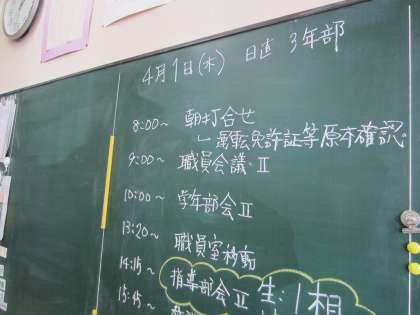 4月1日(水) 日直 3年部
8:00~ 朝打合せ
運転免許証等原本確認
9:00~ 職員会議Ⅱ
10:00~ 学年部会Ⅱ
13:20~ 職員室移動
14:15~ 指導部会Ⅱ 生:1相
15:15~